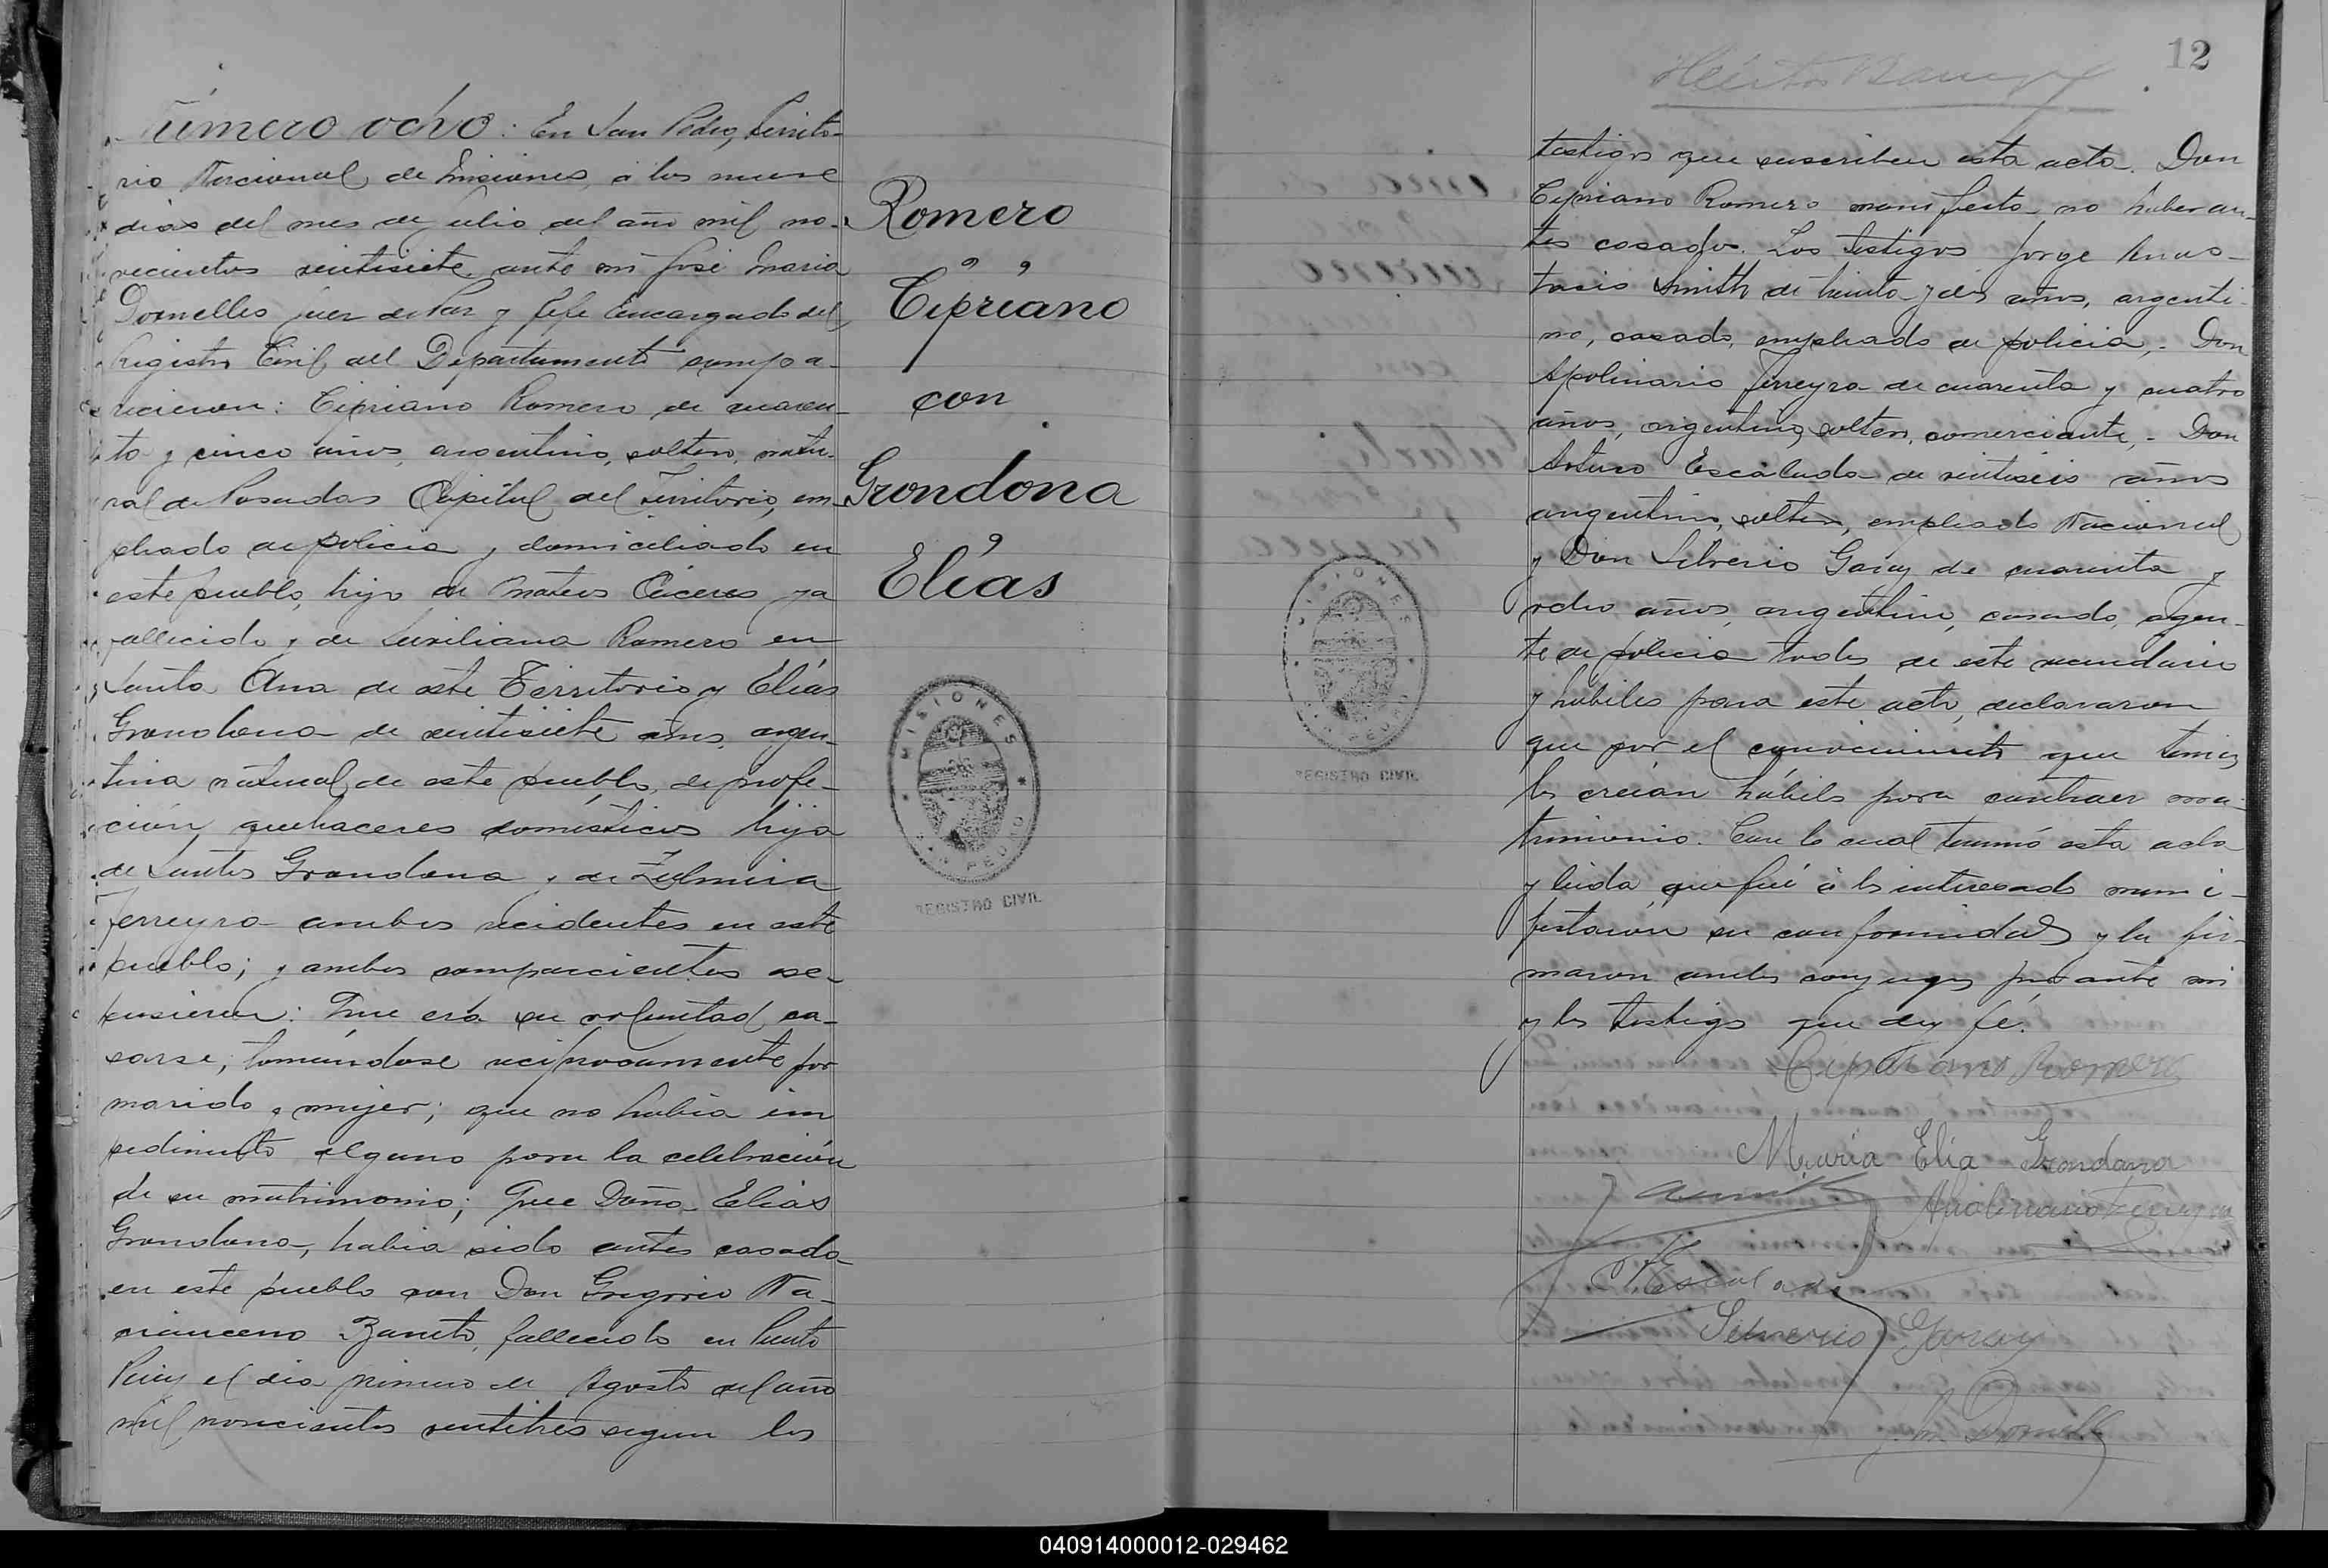 Número ocho: En San Pedro, Territo-
rio Nacional de Misiones, á los nueve
dias del mes de Julio del año mil no-
vecientos veintisiete, ante mi José Maria
Dornelles Juez de Paz y Jefe Encargado del
Registro Civil del Departamento compa-
recieron: Cipriano Romero de cuaren-
ta y cinco años, argentino, soltero, natu-
ral de Posadas Capital del Territorio, em-
pleado de policia y domiciliado en
este pueblo, hijo de Mateos Cáceres ya
fallecido y de Romero en
Santa Ana de este Territorio y Elías
Grondona de veintisiete años, argen-
tina natural de este pueblo, de profe-
ción quehaceres domésticos hija
de Santos Grondona y de Zulmira
Ferreyra ambos recidentes en este
pueblo; y ambos comparecientes es-
pusieron: Que era su voluntad ca-
sarse, tomándose reciprocamente por
marido y mujer; que no habia im
pedimento alguno para la celebración
de su matrimonio; Que Doña Elías
Grondona, habia sido antes casada
en este pueblo con Don Gregorio Na-
cianceno Zaneto, fallecido en Puerto
Piray el dia primero de Agosto del año
mil novecientos veintitres segun los
Romero
Cipriano
con
Grondona
Elías
MISIONES
SAN PEDRO
REGISTRO CIVIL
12
testigos que suscriben esta acta. Don
Cipriano Romero manifesto no haber an-
tes casado. Los testigos Jorge Anas-
tacio Smith de treinta y dos años, argenti-
no, casado, empleado de policia,- Don
Apolinario Ferreyra de cuarenta y cuatro
años, argentino, soltero, comerciante,- Don
Arturo Escalada de veintiseis años
argentino, soltero, empleado Nacional
y Don Silverio Garay de cuarenta y
ocho años, argentino, casado, agen-
te de policia todos de este vecindario
y habiles para este acto, declararon
que por el conocimiento que tenian
los creían hábiles para contraer ma-
trimonio. Con lo cual terminó esta acta
y leida que fué á los interesados mani-
festaron su conformidad y la fir-
maron ambos conyuges por ante mi
y los testigos que doy fé.
Cipriano Romero
María Elía Grondona
Apolinario Ferreyra
Escalada
Silverio Garay
J. M. Dornelles
MISIONES
SAN PEDRO
REGISTRO CIVIL
040914000012-029462